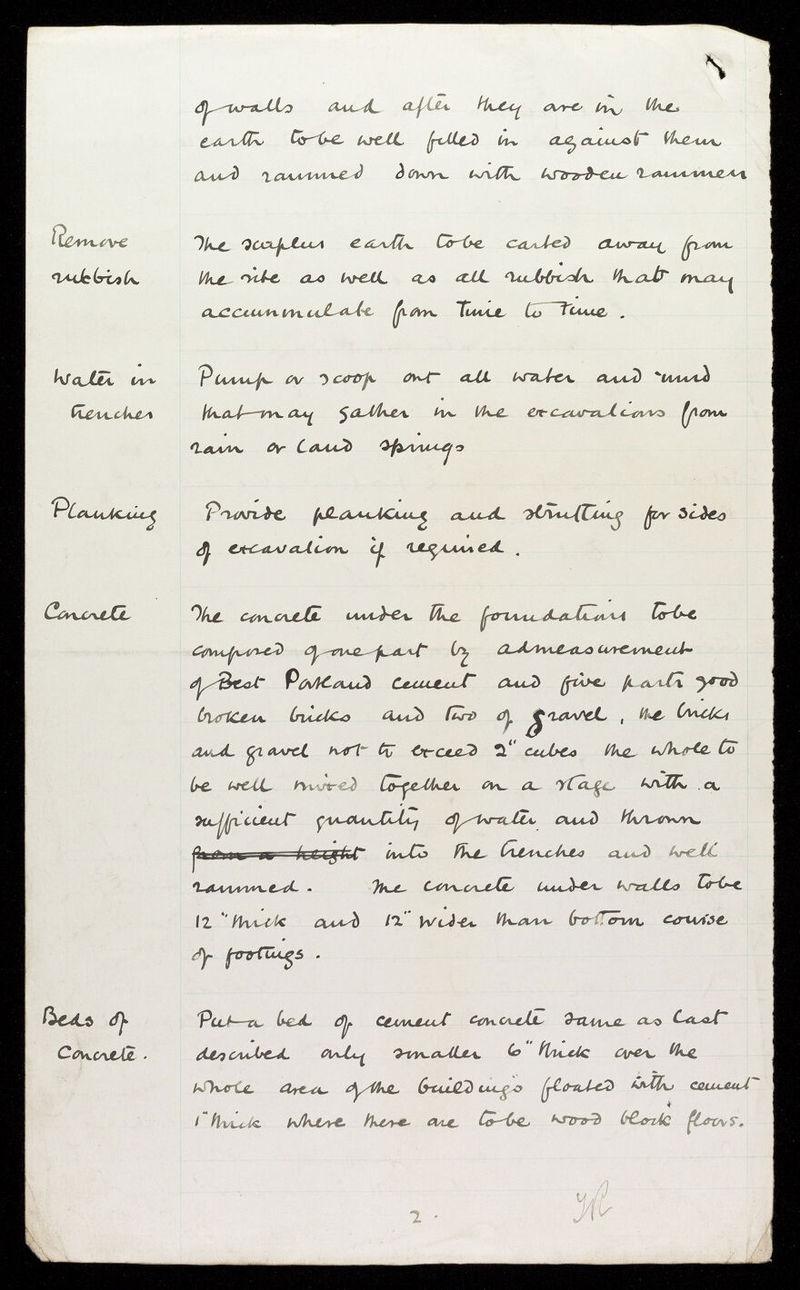 of walls and after they are in the
earth to be well filled in against them
and rammed down with wooden rammers
Remove
rubbish
The surplus earth to be carted away from
the site as well as all rubbish that may
accummulate from time to time.
Water in
trenches
Pump or scoop out all water and mud
that may gather in the excavations from
rain or land springs
Planking
Provide planking and strutting for sides
of excavation if required.
Concrete
The concrete under the foundations to be
composed of one part by admeasurement
of Best Portland cement and five parts good
broken bricks and two of gravel, the bricks
and gravel not to exceed 2" cubes the whole to
be well mixed together on a stage with a
sufficient quantity of water and thrown
from a height into the trenches and well
rammed. The concrete under walls to be
12" thick and 12" wider than bottom course
of footings.
Beds of
Concrete.
Put a bed of cement concrete same as last
described only smaller 6" thick over the
whole area of the buildings floated with cement
1" thick where there are to be wood block floors.
2.